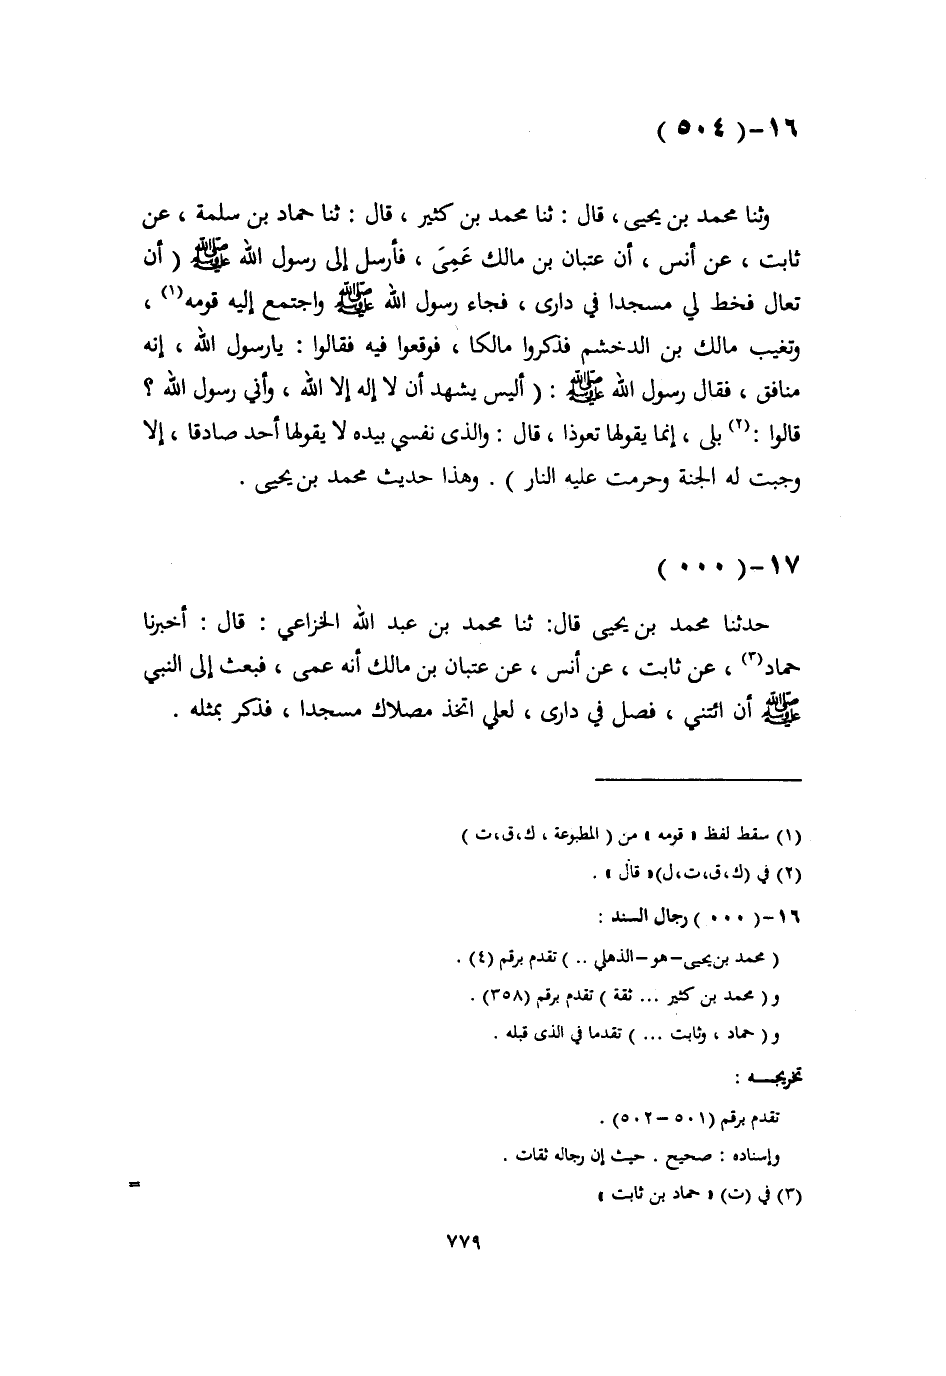 ١٦-( ٥٠٤ )
وثنا محمد بن يحيى ، قال : ثنا محمد بن كثير ، قال : ثنا حماد بن سلمة ، عن
ثابت ، عن أنس ، أن عتبان بن مالك عَمِىَ ، فأرسل إلى رسول الله ﷺ ( أن
تعال فخط لي مسجدا في دارى ، فجاء رسول الله ﷺ واجتمع إليه قومه(١) ،
وتغيب مالك بن الدخشم فذكروا مالكا ، فوقعوا فيه فقالوا : يارسول الله ، إنه
منافق ، فقال رسول الله ﷺ : ( أليس يشهد أن لا إله إلا الله ، وأني رسول الله ؟
قالوا :(٢) بلى ، إنما يقولها تعوذا ، قال : والذى نفسي بيده لا يقولها أحد صادقا ، إلا
وجبت له الجنة وحرمت عليه النار ) . وهذا حديث محمد بن يحيى .
١٧-( ٠٠٠ )
حدثنا محمد بن يحيى قال: ثنا محمد بن عبد الله الخزاعي : قال : أخبرنا
حماد(٣) ، عن ثابت ، عن أنس ، عن عتبان بن مالك أنه عمى ، فبعث إلى النبي
ﷺ أن ائتني ، فصل في دارى ، لعلي اتخذ مصلاك مسجدا ، فذكر بمثله .
(١) سقط لفظ « قومه » من ( المطبوعة ، ك،ق،ت )
(٢) في (ك،ق،ت،ل)« قال » .
١٦-( ٠٠٠ ) رجال السند :
( محمد بن يحيى-هو-الذهلي .. ) تقدم برقم (٤) .
و ( محمد بن كثير ... ثقة ) تقدم برقم (٣٥٨) .
و ( حماد ، وثابت ... ) تقدما في الذى قبله .
تخريجــه :
تقدم برقم (٥٠١-٥٠٢) .
وإسناده : صحيح . حيث إن رجاله ثقات .
(٣) في (ت) « حماد بن ثابت »
=
٧٧٩